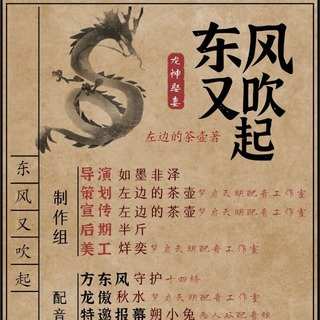 东风又吹起
龙神娶妻
左边的茶壶著
东风又吹起
制作组
导演 如墨非泽
策划 左边的茶壶 梦启天明配音工作室
宣传 左边的茶壶 梦启天明配音工作室
后期 半斤
美工 烊奕 梦启天明配音工作室
配音
方东风 守护 十四桥
龙傲 秋水
特邀报幕 朔小兔